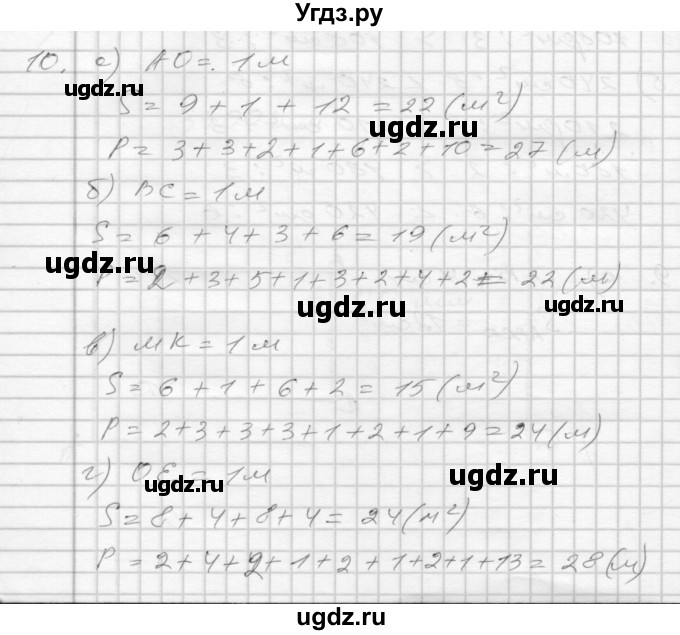 Угдз.ру
10. а) АО = 1 м
ugdz.ru
S = 9 + 1 + 12 = 22 (м²)
ugdz.ru
P = 3 + 3 + 2 + 1 + 6 + 2 + 10 = 27 (м)
б) ВС = 1 м
S = 6 + 4 + 3 + 6 = 19 (м²)
ugdz.ru
P = 2 + 3 + 5 + 1 + 3 + 2 + 4 + 2 = 22 (м)
ugdz.ru ugdz.ru
в) МК = 1 м
S = 6 + 1 + 6 + 2 = 15 (м²)
P = 2 + 3 + 3 + 3 + 1 + 2 + 1 + 9 = 24 (м)
г) ОЕ = 1 м
ugdz.ru ugdz.ru
S = 8 + 4 + 8 + 4 = 24 (м²)
P = 2 + 4 + 2 + 1 + 2 + 1 + 2 + 1 + 13 = 28 (м)
ugdz.ru